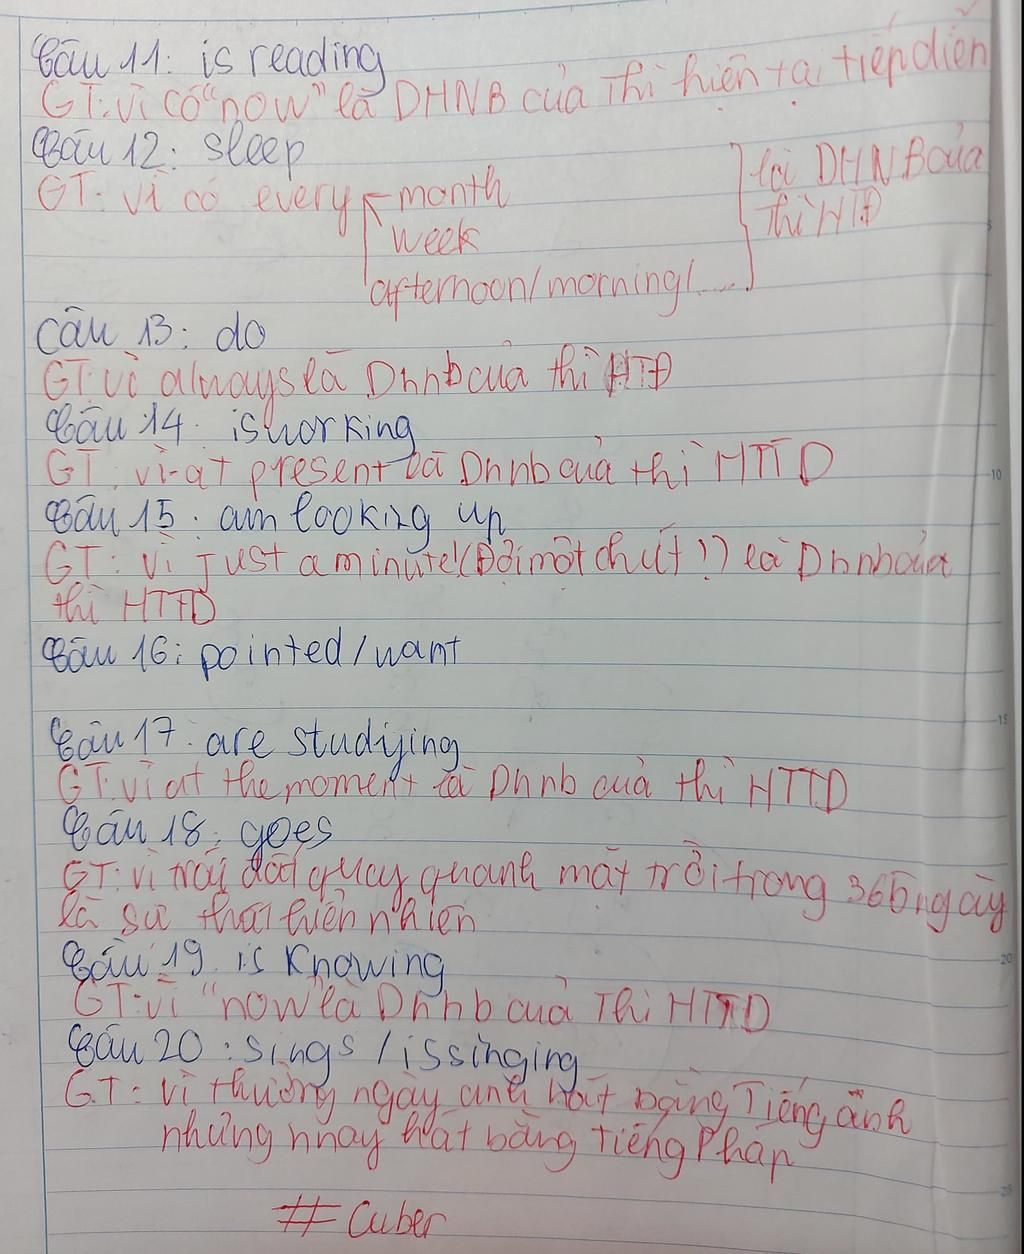 Câu 11: is reading
GT: vì có "now" là DHNB của Thì hiện tại tiếp diễn
Câu 12: sleep
GT: vì có every month là DHNB của
week thì HTĐ
afternoon/morning/....
Câu 13: do
GT: vì always là Dhnb của thì HTĐ
Câu 14: is working
GT: vì at present là Dhnb của thì HTTD
Câu 15: am looking up
GT: vì just a minute! (Đợi một chút!) là Dhnb của
thì HTTD
Câu 16: pointed/want
Câu 17: are studying
GT: vì at the moment là Dhnb của thì HTTD
Câu 18: goes
GT: vì trái đất quay quanh mặt trời trong 365 ngày
là sự thật hiển nhiên
Câu 19. is knowing
GT: vì "now" là Dhnb của Thì HTTD
Câu 20: sings / is singing
GT: vì thường ngày anh hát bằng Tiếng anh
nhưng nnay hát bằng tiếng Pháp
# Cuber
10
15
20
25